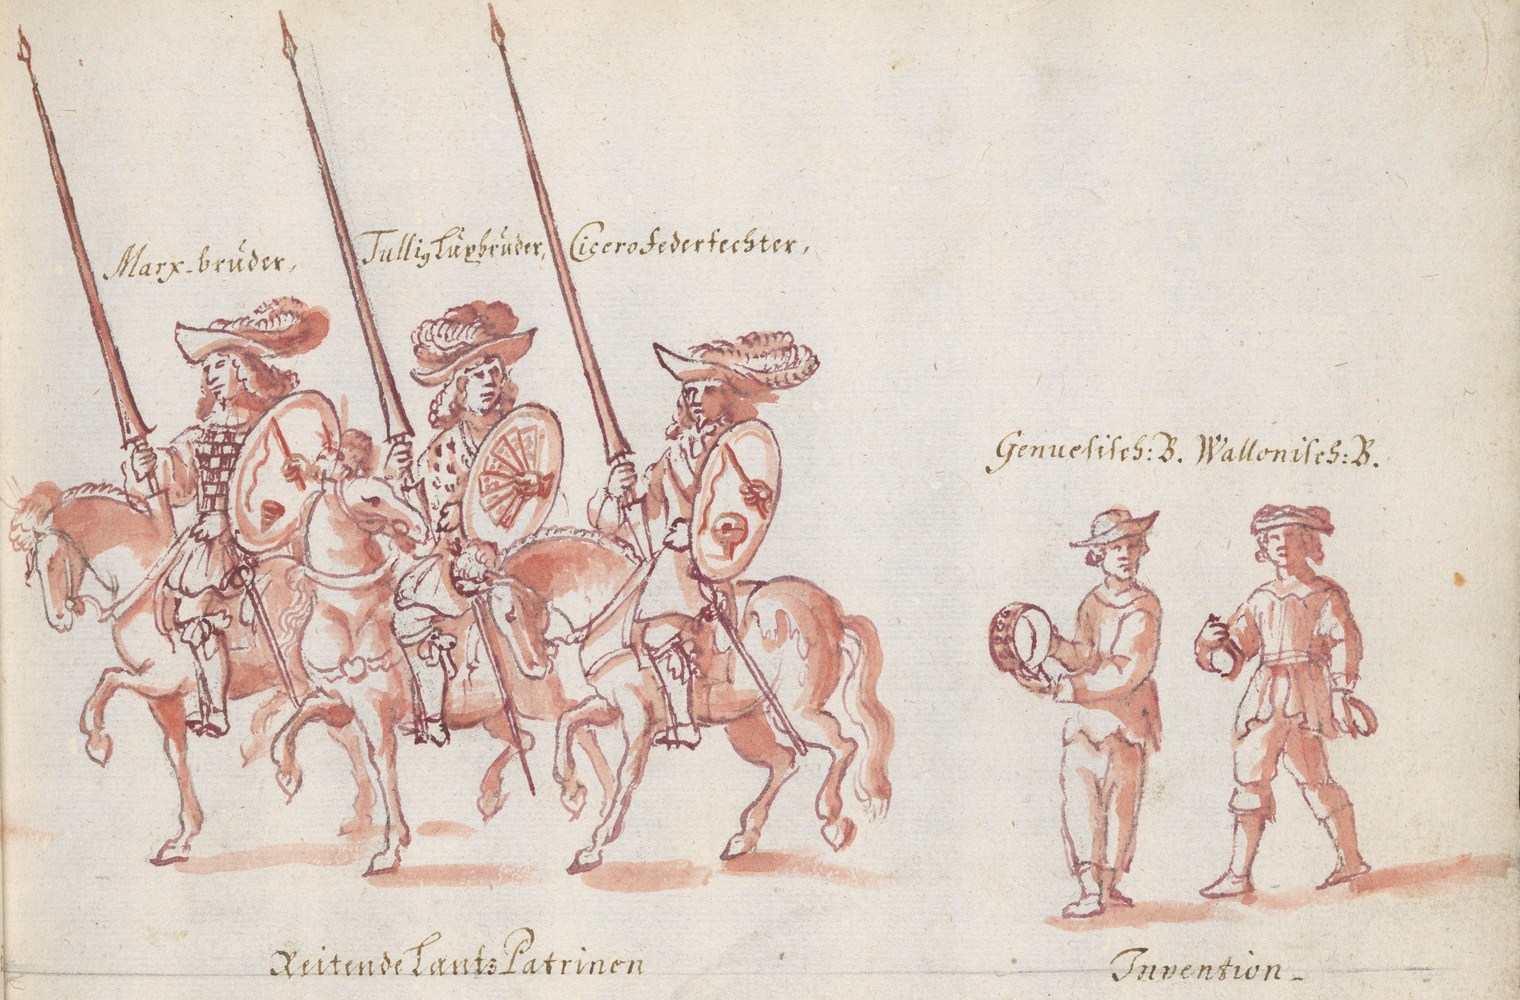 Marx-brüder,
Tullig Lüxbrüder,
Cicero federfechter,
Genuesisch: B. Wallonisch: B.
Reitende Lants Patrinen
Invention